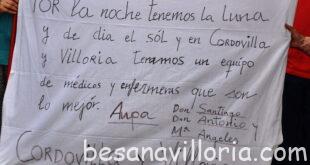 POR la noche tenemos la luna
y de dia el sól y en CORDOVILLA
y Villoria tenemos un equipo
de médicos y enfermeras que son
lo mejor. Aupa Don Santiago
Don Antonio y
Mª Angeles
CORDOVI
besanavilloria.com